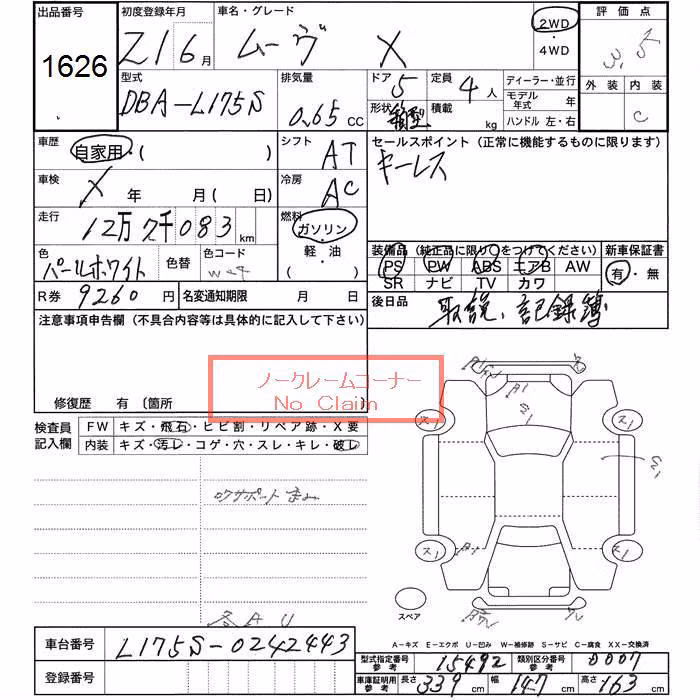 出品番号 初度登録年月 車名・グレード 評価点
1626 21 6月 ムーヴ X 2WD・4WD 3.5
型式 排気量 ドア 5 定員 4人 ディーラー・並行 外装 内装
DBA-L175S 0.65 CC 形状 箱型 積載 kg モデル年式 年 C
ハンドル 左・右
車歴 自家用・( ) シフト AT セールスポイント(正常に機能するものに限ります)
車検 X 年 月(日) 冷房 AC キーレス
走行 12万7千083 km 燃料 ガソリン
軽・油
( )
色 パールホワイト 色替 色コード W24 装備品(純正品に限り○をつけてください) 新車保証書
PS PW ABS エアB AW 有・無
SR ナビ TV カワ
R券 9260円 名変通知期限 月 日 後日品 取説、記録簿
注意事項申告欄(不具合内容等は具体的に記入して下さい)
ノークレームコーナー
No Claim
修復歴 有〔箇所
検査員記入欄 FW キズ・飛石・ヒビ割・リペア跡・X要
内装 キズ・汚レ・コゲ・穴・スレ・キレ・破レ
ロアサポート歪み
A1
S1
ス1 ス1
ス1 ス1
スペア
A-キズ E-エクボ U-凹み W-補修跡 S-サビ C-腐食 XX-交換済
車台番号 L175S-0242443
登録番号
型式指定番号 参考 15492 類別区分番号 参考 0007
車庫証明用 参考 長さ 339 cm 幅 147 cm 高さ 163 cm